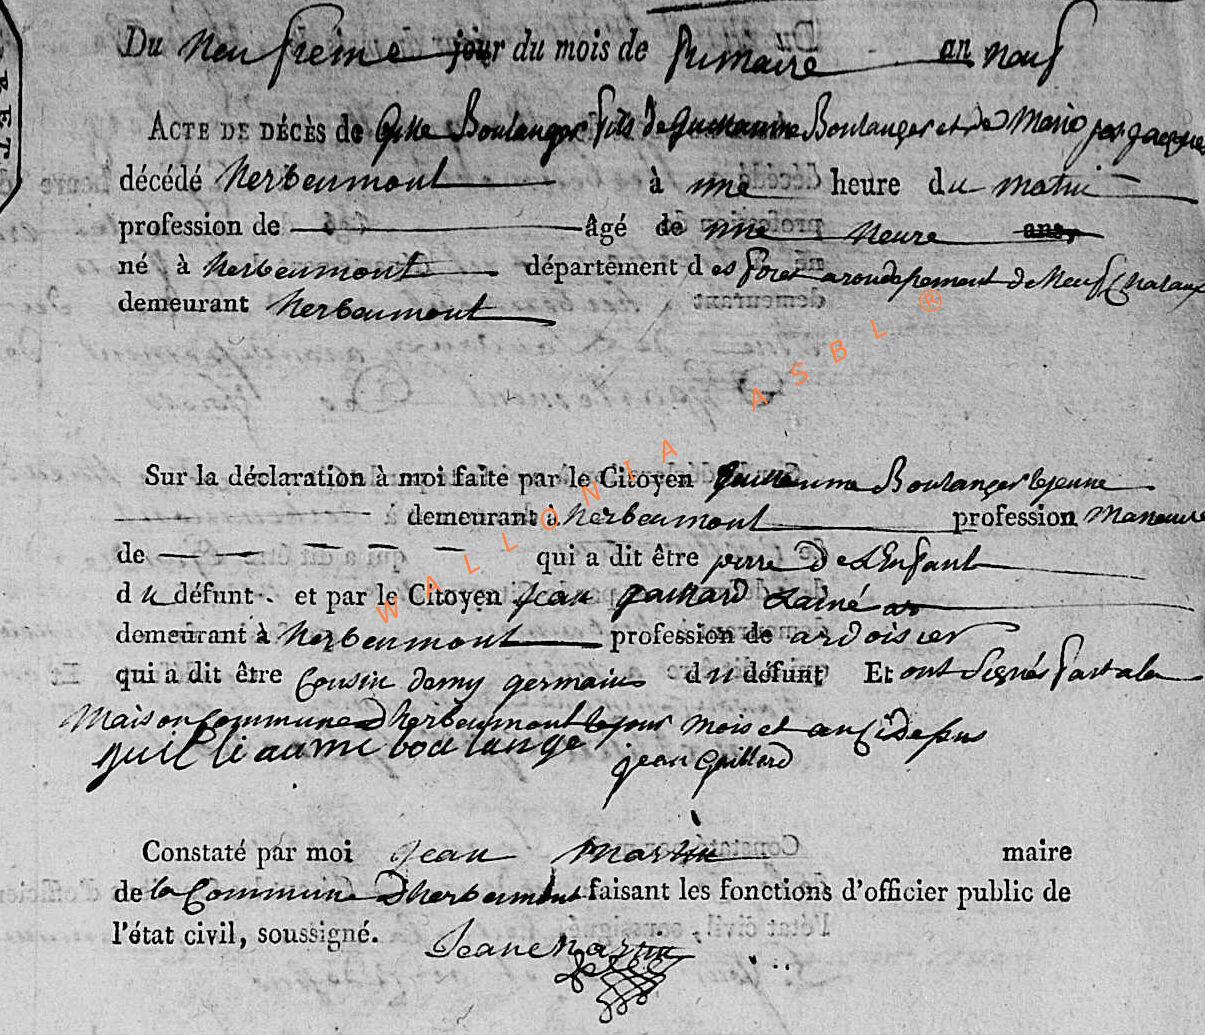 Du neufieme jour du mois de frimaire an neuf
ACTE DE DÉCÈS de Gille Boulanger fils de Guillaume Boulanger et de Marie jos jacques
décédé herbeumont à une heure du matin
profession de âgé de une heure ans,
né à herbeumont département des foret arondissement de Neufchataux
demeurant herbeumont
Sur la déclaration à moi faite par le Citoyen guillaume Boulanger lejeune
demeurant à herbeumont profession Maneuvre
de qui a dit être perre de Lenfant
du défunt et par le Citoyen jean gaillard Lainé
demeurant à herbeumont profession de ardoisier
qui a dit être Cousin demy germains du défunt Et ont Signés fait a la
Maison Commune dherbeumont le jour mois et an Cidessus
guilliaume boulange jean Gaillard
Constaté par moi jean Martin maire
de la Commune Dherbeumont faisant les fonctions d'officier public de
l'état civil, soussigné.
Jean Martin
WALLONIA ASBL ®